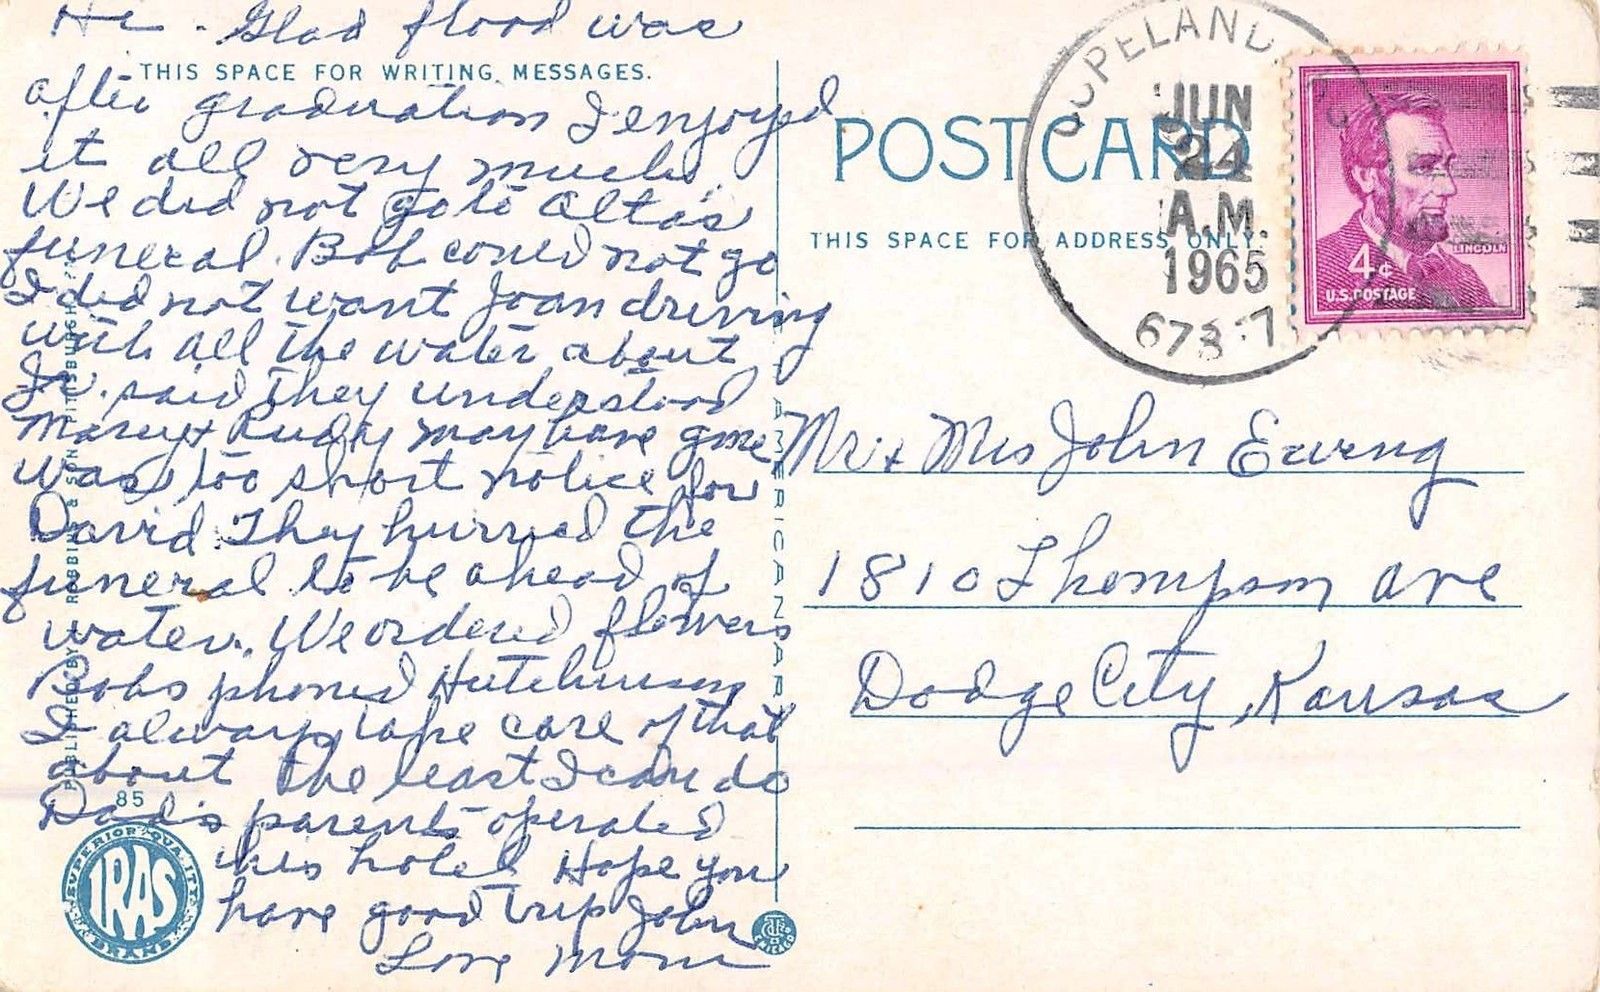 Hi - Glad flood was
THIS SPACE FOR WRITING MESSAGES.
after graduation I enjoyed
it all very much.
We did not go to Alta's
funeral. Bob could not go
I did not want Joan driving
with all the water about
Jr. said they understood
Mary & Rudy may have gone
was too short notice for
David. They hurried the
funeral to be ahead of
water. We ordered flowers
Bobs phoned Hutchinson
I always take care of that
about the least I can do
Dad's parents operated
this hotel Hope you
have good trip John
Love Mom
85
SUPERIOR QUALITY
IRAS
BRAND
PUBLISHED BY ROBBINS & SON PITTSBURGH
AMERICAN ART
CHICAGO
POSTCARD
THIS SPACE FOR ADDRESS ONLY.
COPELAND,
JUN
24
A.M.
1965
67837
LINCOLN
4¢
U.S. POSTAGE
Mr & Mrs John Ewing
1810 Thompson Ave
Dodge City, Kansas